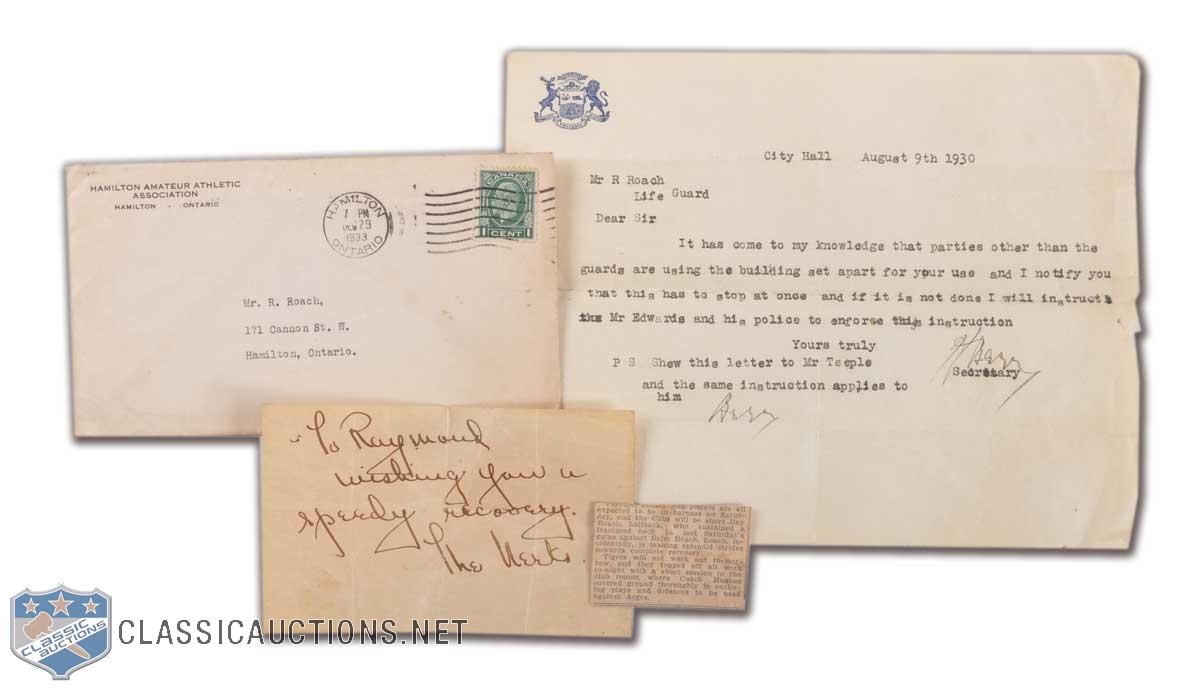 HAMILTON AMATEUR ATHLETIC
ASSOCIATION
HAMILTON - ONTARIO
HAMILTON
1 PM
29
1933
ONTARIO
CANADA
1 CENT 1
Mr. R. Roach,
171 Cannon St. W.
Hamilton, Ontario.
City Hall August 9th 1930
Mr R Roach
Life Guard
Dear Sir
It has come to my knowledge that parties other than the
guards are using the building set apart for your use and I notify you
that this has to stop at once and if it is not done I will instruct
Mr Edwards and his police to enforce this instruction
Yours truly
Secretary
P S Shew this letter to Mr Teeple
and the same instruction applies to
him
To Raymond
wishing you a
speedy recovery.
The
are all
expected to be in harness on Satur-
day, and the Cubs will be short Jiny
Roach, halfback, who sustained a
fractured neck in last Saturday's
game against Balm Beach. Roach, in-
cidentally, is making splendid strides
towards complete recovery.
Tigers will not work out to-mor-
row, and they topped off all work
to-night with a short session in the
club rooms, where Coach Hughes
covered ground thoroughly in outlin-
ing plays and defences to be used
against Argos.
CLASSIC
AUCTIONS
CLASSICAUCTIONS.NET